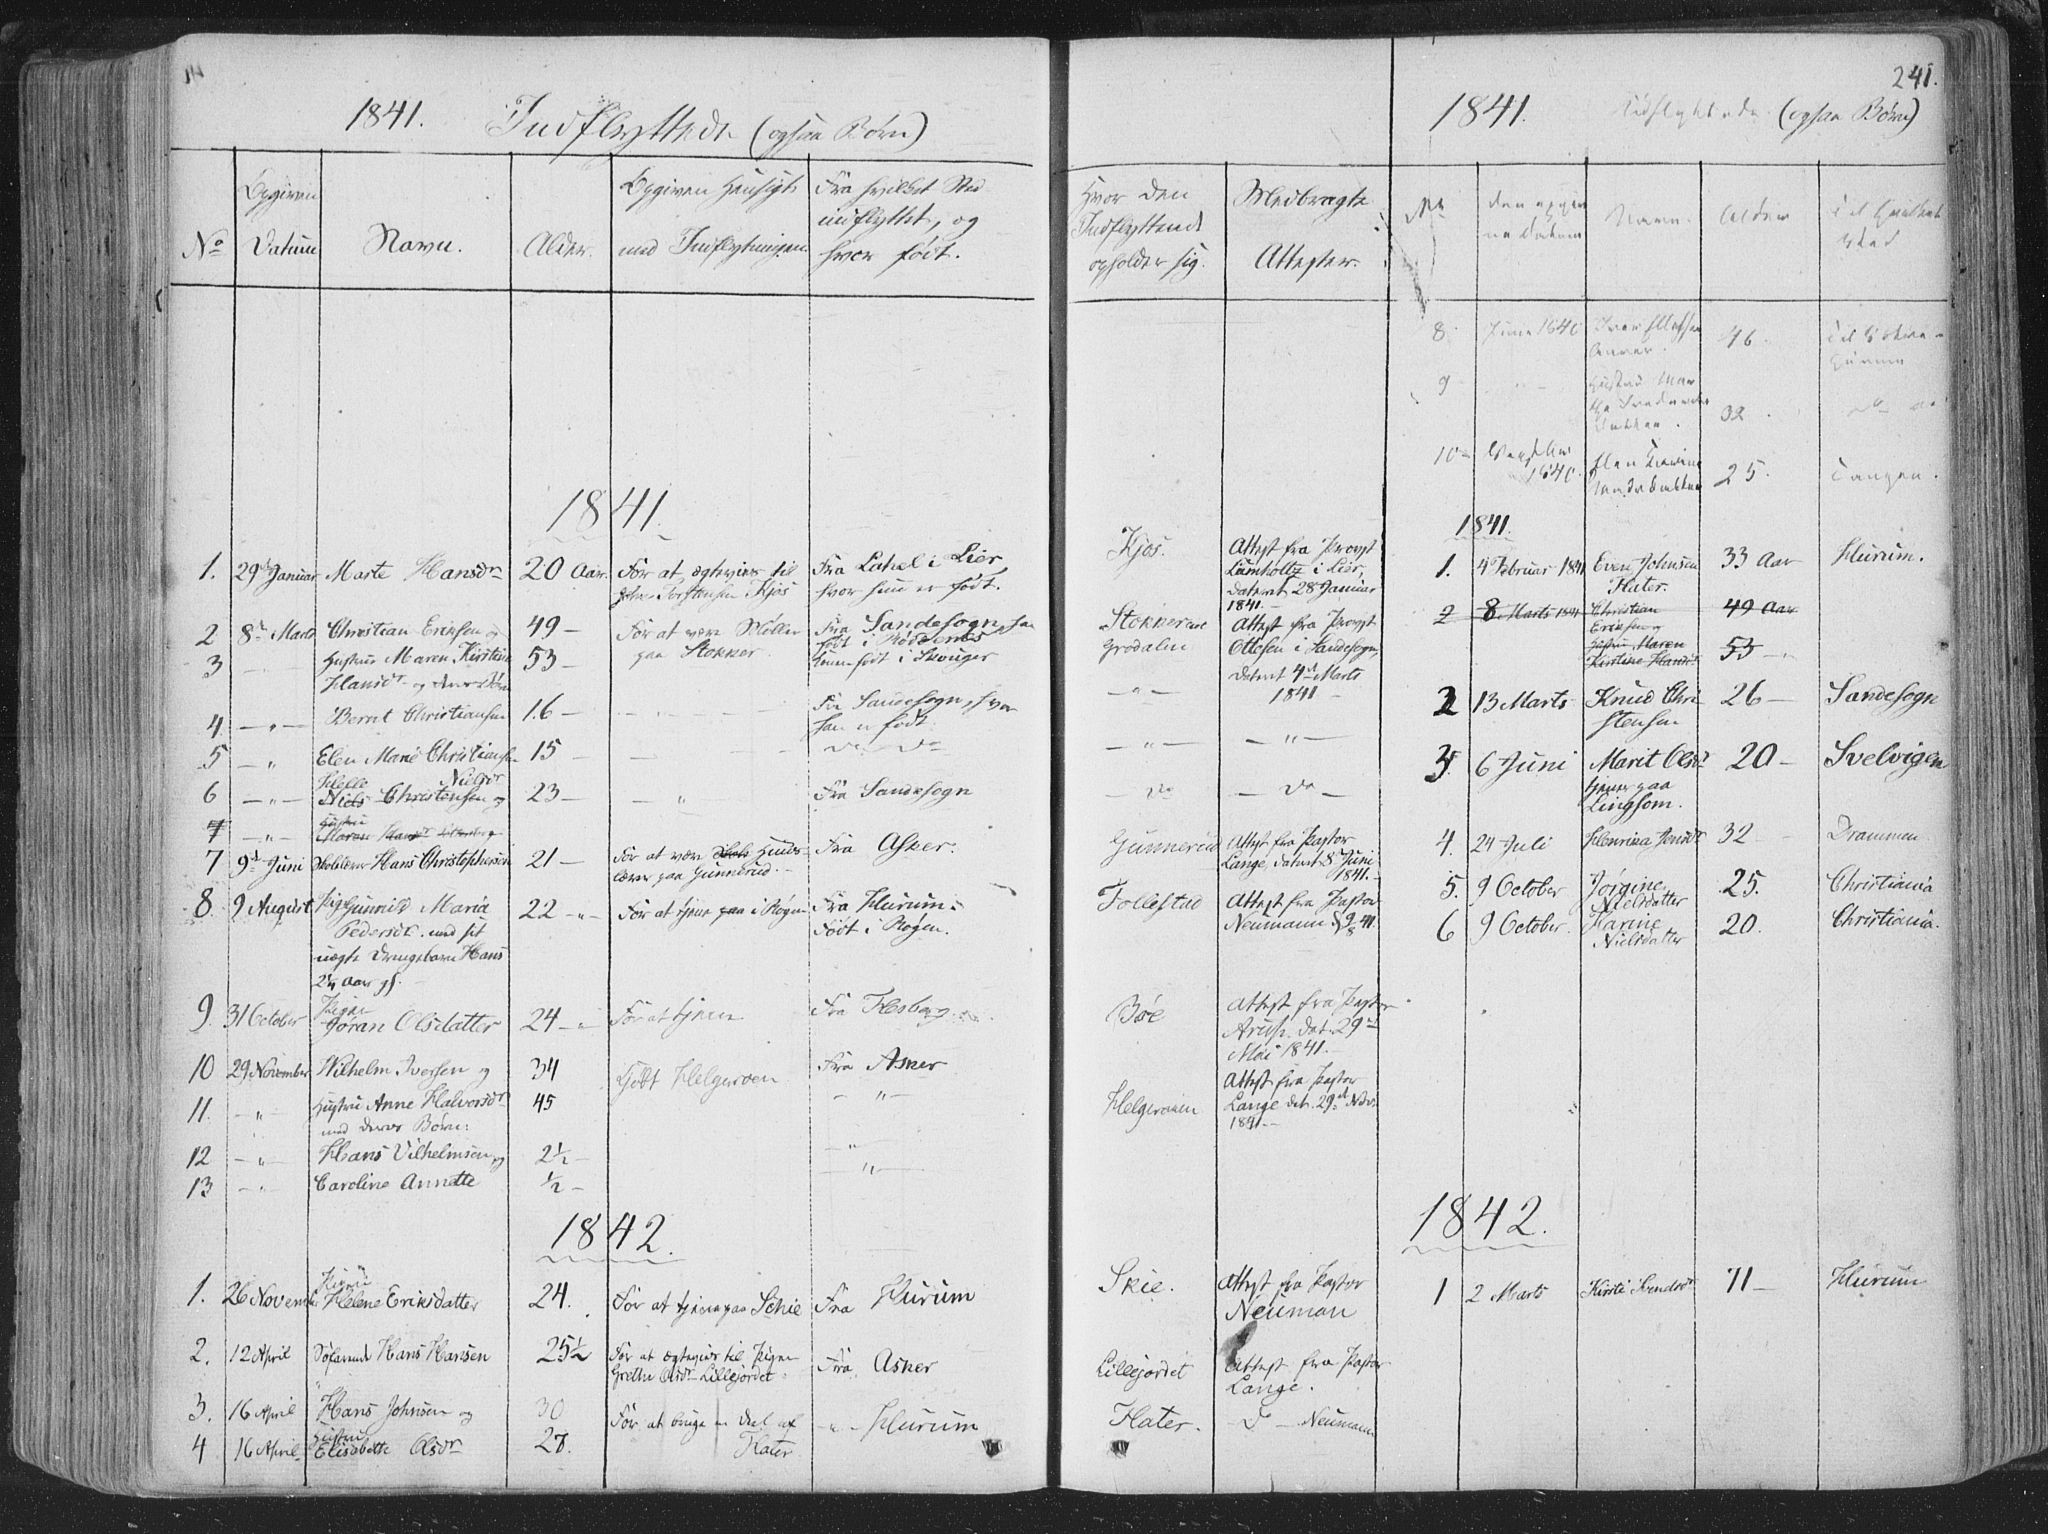 241.
1841. Indflyttede (ogsaa Børn)
No
Opgiven Datum
Navn.
Alder.
Opgiven Hensigt med Indflytningen
Fra hvilket Sted indflyttet, og hvor født.
Hvor den Indflyttende opholder sig.
Medbragte Attester.
1841
1. 29d Januar Marte Hansdr 20 Aar. For at ægtevies til Torstensen Kjos Fra Lahel i Lier, hvor hun er født. Kjos. Attest fra Provst Lumholtz i Lier, dateret 28 Januar 1841.
2 8d Marts Christian Eriksen og 49 — For at være Møller paa Stokker. Fra Sandesogn, født i Stokkerne Attest fra Provst
3 Hustru Maren Kirstine Hansdr og deres Søn 53 — Hun født i Skouger Grødalen Ottesen i Sandesogn, dateret 4d Marts 1841
4 — " — Bernt Christiansen 16 — Fra Sandesogn, hvor han er født. — " —
5 — " Elen Marie Christiansen 15 — Do Do — " — — " —
6 — " — Helle Nielsdr Niels Christensen og 23 — " Fra Sandesogn — Do — Do —
7 — " — Hustru Maren Hansdr
7 9d Juni Skolelærer Hans Christophersen 21 — For at være Huuslærer paa Gunnerud. Fra Asker. Gunnerud Attest fra Pastor Lange, dateret 8 Juni 1841.
8 9 August Pige Gunnild Maria Pedersdr. med sit uægte Drengebarn Hans 2¼ Aar gl. 22 — " — For at tjene paa i Røgen Fra Hurum. Født i Røgen. Follestad Attest fra Pastor Neumann 9/8 41.
9. 31 October Pigen Jøran Olsdatter 24 — " For at tjene Fra Hesberg Bøe Attest fra Pastor Arup. dat. 29d Mai 1841.
10 29 November Wilhelm Iversen og 34 kjøbt Helgeroen Fra Asker Attest fra Pastor
11. — " — Hustru Anne Halvorsdr med deres Børn: 45 — " — Helgeroen Lange dat. 29d Nov. 1841.
12 — " — Hans Vilhelmsen og 2½ — "
13 — " Caroline Annette ½ — — " —
1842.
1. 26 Novemb Pigen Helene Eriksdatter 24. For at tjene paa Schie Fra Hurum Skie. Attest fra Pastor Neuman
2. 12 April Søfarende Hans Hansen 25½ For at ægtevies til Pigen Grethe Olsdr Lillejordet. Fra Asker Lillejordet Attest fra Pastor Lange.
3. 16 April Hans Johnsen og 30 For at bruge en Deel af Flater — " — Hurum Flater. — Do — Neumann
4 16 April Hustru Elisabethe Olsdr 28.
1841. Udflyttede (ogsaa Børn)
No
Den opgivne Datum
Navn.
Alder
Til hvilket Sted
8. Juni 1840 46. Til
9 — " — Hustru 32.
10 — 1840. 25. Tangen.
1841.
1. 4 Februar 1841 Even Johnsen Flater. 33 Aar Hurum.
2 8 Marts 1841 Christian Eriksen og 49 Aar
Hustru Maren Kirstine Hansdr 53 — "
2 13 Marts Knud Christensen 26 — Sandesogn
3 6 Juni Marit Olsdr tjener paa Lingsom. 20 — Svelvigen
4. 24 Juli Henrica Jensdr 32 — Drammen
5. 9 October Jørgine Nielsdatter 25. Christiania
6 9 October Karine Nielsdatter 20. Christiania.
1842.
1 2 Marts Kirsti Svendsdr 71 — Hurum